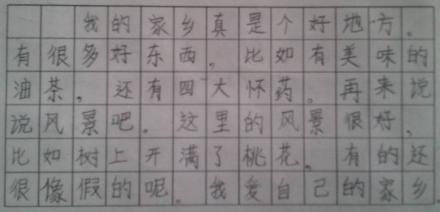 我的家乡真是个好地方。
有很多好东西，比如有美味的
油茶，还有四大怀药。再来说
说风景吧。这里的风景很好，
比如树上开满了桃花，有的还
很像假的呢。我爱自己的家乡。